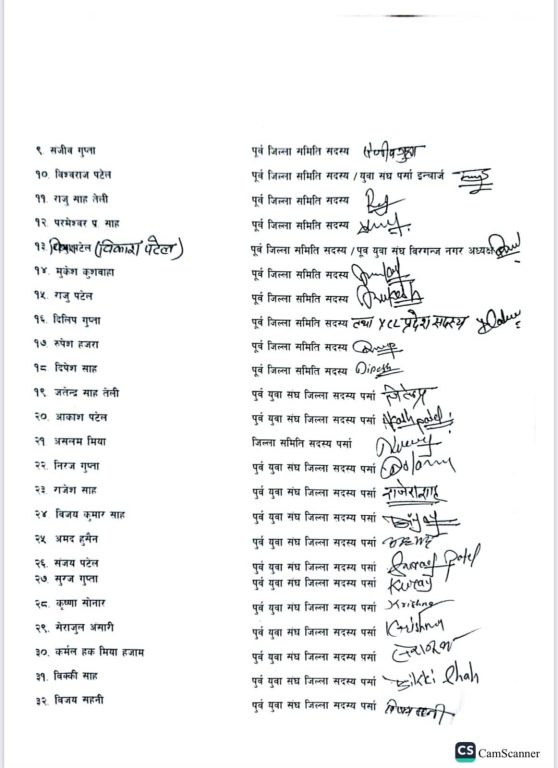 ९. सजीव गुप्ता पूर्व जिल्ला समिति सदस्य
१०. विश्वराज पटेल पूर्व जिल्ला समिति सदस्य / युवा संघ पर्सा इन्चार्ज
११. राजु साह तेली पूर्व जिल्ला समिति सदस्य
१२. परमेश्वर प्र. साह पूर्व जिल्ला समिति सदस्य
१३. पटेल (विकाश पटेल) पूर्व जिल्ला समिति सदस्य / पूव युवा संघ विरगन्ज नगर अध्यक्ष
१४. मुकेश कुशवाहा पूर्व जिल्ला समिति सदस्य
१५. राजु पटेल पूर्व जिल्ला समिति सदस्य
१६. दिलिप गुप्ता पूर्व जिल्ला समिति सदस्य तथा YCL प्रदेश सदस्य
१७. रुपेश हजरा पूर्व जिल्ला समिति सदस्य
१८ दिपेश साह पूर्व जिल्ला समिति सदस्य Dipesh
१९. जतेन्द्र साह तेली पुर्व युवा संघ जिल्ला सदस्य पर्सा
२०. आकाश पटेल पुर्व युवा संघ जिल्ला सदस्य पर्सा Akash patel
२१ असलम मिया जिल्ला समिति सदस्य पर्सा
२२. निरज गुप्ता पुर्व युवा संघ जिल्ला सदस्य पर्सा
२३. राजेश साह पुर्व युवा संघ जिल्ला सदस्य पर्सा
२४. विजय कुमार साह पुर्व युवा संघ जिल्ला सदस्य पर्सा Bijay
२५ अमद हुसैन पुर्व युवा संघ जिल्ला सदस्य पर्सा
२६. संजय पटेल पुर्व युवा संघ जिल्ला सदस्य पर्सा Patel
२७. सुरज गुप्ता पुर्व युवा संघ जिल्ला सदस्य पर्सा
२८. कृष्णा सोनार पुर्व युवा संघ जिल्ला सदस्य पर्सा Krishna
२९. सेराजुल अंसारी पुर्व युवा संघ जिल्ला सदस्य पर्सा Krishna
३०. कर्मल हक मिया हजाम पुर्व युवा संघ जिल्ला सदस्य पर्सा
३१. विक्की साह पुर्व युवा संघ जिल्ला सदस्य पर्सा Bikki Shah
३२. विजय सहनी पुर्व युवा संघ जिल्ला सदस्य पर्सा
CS CamScanner